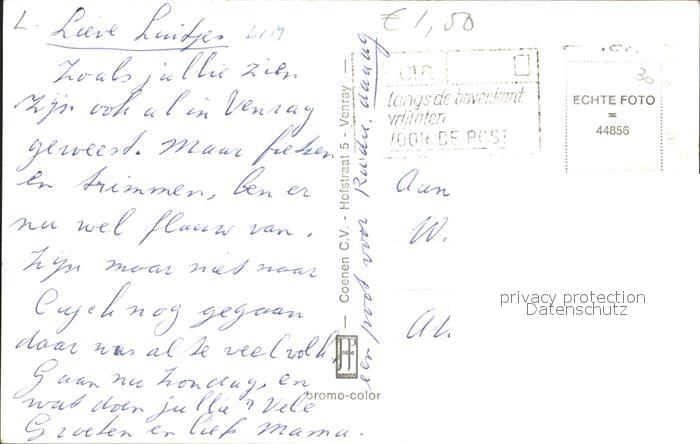 L. Lieve Luitjes LIM
Zoals jullie zien
zijn ook al in Venray
geweest. Maar fietsen
en trimmen, ben er
nu wel flauw van.
Zijn maar niet naar
Cuijck nog gegaan
daar was al te veel volk.
Gaan nu Zondag, en
wat doen jullie? Vele
Groeten en liefs Mama.
een poot voor Ruden. daaag
Coenen C.V. - Hofstraat 5 - Venray
jp
bromo-color
€ 1,50
langs de bovenkant
vrijlaten
VOOR DE POST
30
ECHTE FOTO
44856
Aan
W.
privacy protection
Datenschutz